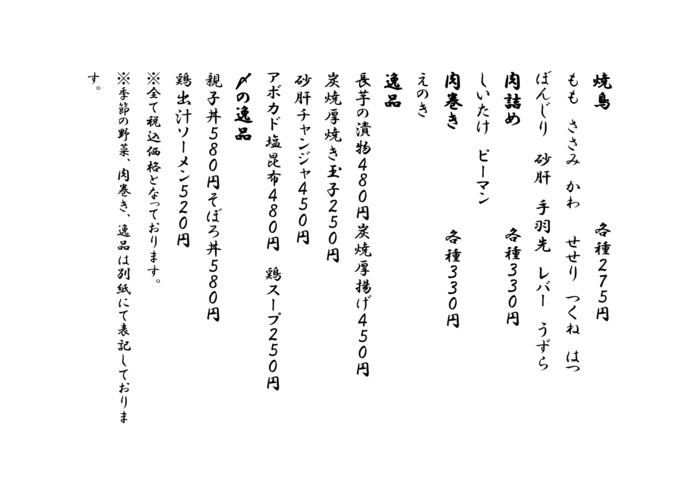 焼鳥　各種２７５円
もも　ささみ　かわ　せせり　つくね　はつ
ぼんじり　砂肝　手羽先　レバー　うずら
肉詰め　各種３３０円
しいたけ　ピーマン
肉巻き　各種３３０円
えのき
逸品
長芋の漬物４８０円炭焼厚揚げ４５０円
炭焼厚焼き玉子２５０円
砂肝チャンジャ４５０円
アボカド塩昆布４８０円　鶏スープ２５０円
〆の逸品
親子丼５８０円そぼろ丼５８０円
鶏出汁ソーメン５２０円
※全て税込価格となっております。
※季節の野菜、肉巻き、逸品は別紙にて表記しておりま
す。